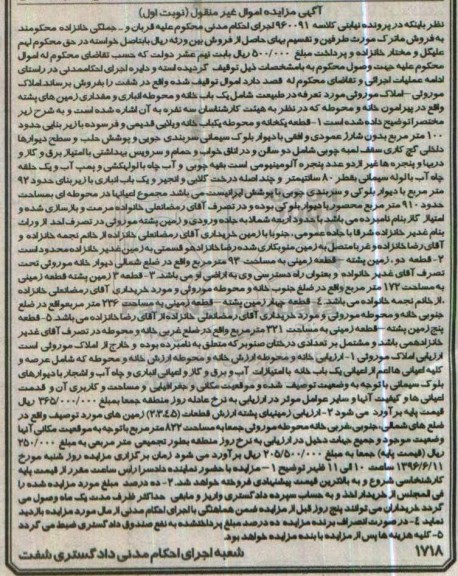 آگهی مزایده اموال غیر منقول (نوبت اول)
نظر باینکه در پرونده نیابتی کلاسه ۹۶۰۰۹۱ اجرای احکام مدنی محکوم علیه قربان و ... جملکی خانزاده محکومند
به فروش ماترک مورث طرفین و تقسیم بهای حاصل از فروش بین ورثه ریال بابت اصل خواسته در حق محکوم لهم
علیگل و مختار خانزاده و پرداخت مبلغ ۵۰۰/۰۰۰ ریال بابت نیم عشر دولت که حسب تقاضای محکوم له اموال
محکوم علیه جهت وصول محکوم به بامشخصات ذیل توقیف گردیده است و دایره اجرای احکام مدنی در راستای
ادامه عملیات اجرائی و تقاضای محکوم له قصد دارد اموال توقیف شده واقع در شفت را بفروش برساند املاک
موروثی – املاک موروثی مورد تعرفه در طبیعت شامل یک باب خانه و محوطه و انباری و مقداری زمین های پشته
واقع در پیرامون خانه و محوطه که در نظر به هیئت کارشناسان سه نفره به آن اشاره شده است و به شرح زیر
مختصر توضیح داده شده است ۱- قطعه یکخانه و محوطه یکباب خانه ویلایی قدیمی و فرسوده با زیر بنای حدود
۱۰۰ متر مربع بدون شناژ عمودی و افقی با دیوار بلوک سیمانی سربندی چوبی و پوشش حلب و سطح دیوارها
داخلی گچ کاری سقف لمبه چوبی شامل دو سالن و دو اتاق خواب و حمام و سرویس بهداشتی با امتیاز برق و گاز و
دربها و پنجره ها غیر از دو عدد پنجره آلومینیومی است بقیه چوبی و آب چاه با لوله کشی و پمپ آب و یک حلقه
چاه آب با لوله سیمانی بقطر ۸۰ سانتیمتر و چند اصله درخت کلابی و انجیر و یک باب انباری با زیر بنای حدود ۹۲
متر مربع با دیوار بلوکی و سربندی چوبی با پوشش ایرانیت می باشد مجموع اعیانها در محوطه ای بمساحت
حدود ۹۱۰ متر مربع محصور با دیوار بلوکی بوده و در تصرف آقای رمضانعلی خانزاده مرمت و بازسازی شده و
امتیاز گاز بنام نامبرده می باشد با حدود اربعه شمالا به جاده ورودی و زمین پشته موروثی در تصرف احد از وراث
بنام غدیر خانزاده شرقا با جاده عمومی، جنوبا با زمین خریداری آقای رمضانعلی خانزاده از خانم نجمه خانزاده و
آقای رضا خانزاده و غربا متصل به زمین صنوبرکاری شده رضا خانزاده و قسمتی به زمین غدیر خانزاده محدود است
۲- قطعه دو، زمین پشته – قطعه زمینی به مساحت ۹۳ مترمربع واقع در ضلع شمالی دیوار خانه موروثی تحت
تصرف آقای غدیر خانواده و بعنوان راه دسترسی وی به اراضی او می باشد. ۳- قطعه ۳ زمین پشته قطعه زمینی
به مساحت ۱۷۲ متر مربع واقع در ضلع جنوب خانه و محوطه موروثی و مورد خریداری آقای رمضانعلی خانزاده
از خانم نجمه خانواده می باشد ۴- قطعه چهار زمین پشته – قطعه زمینی به مساحت ۲۳۶ متر مربع واقع در ضلع
جنوبی خانه و محوطه موروثی و مورد خریداری آقای رمضانعلی خانزاده از آقای رضا خانزاده می باشد ۵- قطعه
پنج زمین پشته – قطعه زمینی به مساحت ۳۲۱ مترمربع واقع در ضلع غربی خانه و محوطه در تصرف آقای غدیر
خانزاده می باشد و مشتمل بر تعدادی درختان صنوبر که متعلق به نامبرده بوده و خارج از املاک موروثی است
ارزیابی املاک موروثی ۱- ارزیابی خانه و محوطه ارزش خانه و محوطه ارزش خانه و محوطه که شامل عرصه و
کلیه اعیانی ها اعم از اعیانی یک باب خانه با امتیازات آب و برق و گاز و اعیانی انباری و چاه آب و اشجار با دیوارهای
بلوک سیمانی با توجه به وضعیت توصیف شده و موقعیت مکانی و جغرافیایی و مساحت و کاربری آن و قدمت
اعیانی ها و کیفیت آنها و سایر عوامل موثر در ارزیابی به نرخ عادله روز منطقه جمعا بمبلغ ۳۶۵/۰۰۰/۰۰۰ ریال
قیمت پایه بر آورد می شود ۲- ارزیابی زمینهای پشته ارزش قطعات (۲،۳،۴،۵) زمین های مورد توصیف واقع در
ضلع های شمالی، جنوبی، غربی خانه محوطه موروثی جمعا به مساحت ۸۲۲ مترمربع با توجه به موقعیت مکانی آنها
وضعیت موجود و جمیع جهات دخیل در ارزیابی به نرخ روز منطقه بطور تجمیعی متر مربعی به مبلغ ۲۵۰/۰۰۰
ریال (قیمت پایه) جمعا به مبلغ ۲۰۵/۵۰۰/۰۰۰ ریال بر آورد می شود زمان برگزاری مزایده روز شنبه مورخ
۱۳۹۶/۶/۱۱ ساعت ۱۰ الی ۱۱ ظهر توضیح ۱– مزایده با حضور نماینده دادسرا راس ساعت مقرر از قیمت پایه
کارشناسی شروع و به بالاترین قیمت پیشنهادی فروخته خواهد شد. ۲- ده درصد مبلغ مورد مزایده شده را
فی المجلس از خریدار اخذ و به حساب سپرده دادگستری واریز و مابقی حداکثر ظرف مدت یک ماه وصول می
گردد خریداران می توانند پنج روز قبل از مزایده ضمن هماهنگی با اجرای احکام مدنی از مال مورد مزایده بازدید
نماید ۴- در صورت انصراف برنده مزایده ده درصد مبلغ پرداخت شده به نفع صندوق دادگستری ضبط می گردد
۵- کلیه هزینه ها پس از مزایده با بنده مزایده خواهد بود.
۱۷۱۸ شعبه اجرای احکام مدنی دادگستری شفت